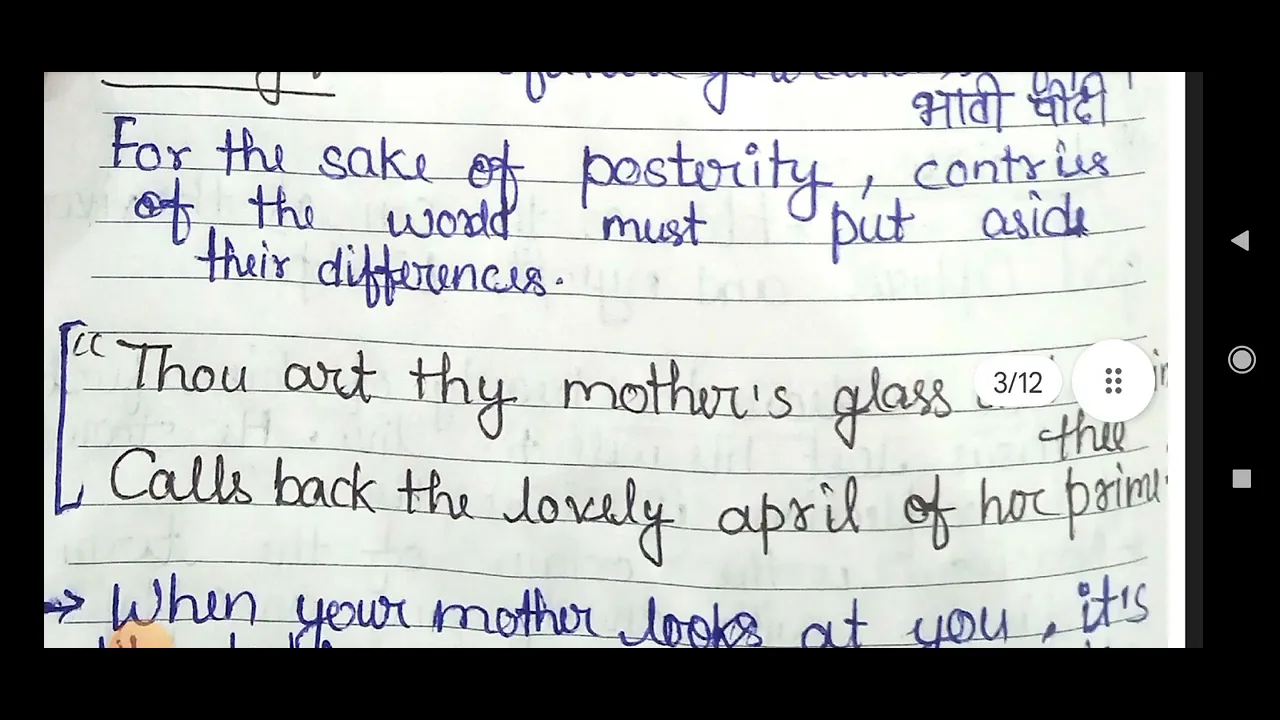 भावी पीढी
For the sake of posterity, contries
of the world must put aside
their differences.
"Thou art thy mother's glass
3/12
thee
Calls back the lovely april of her prime
→ When your mother looks at you, it's